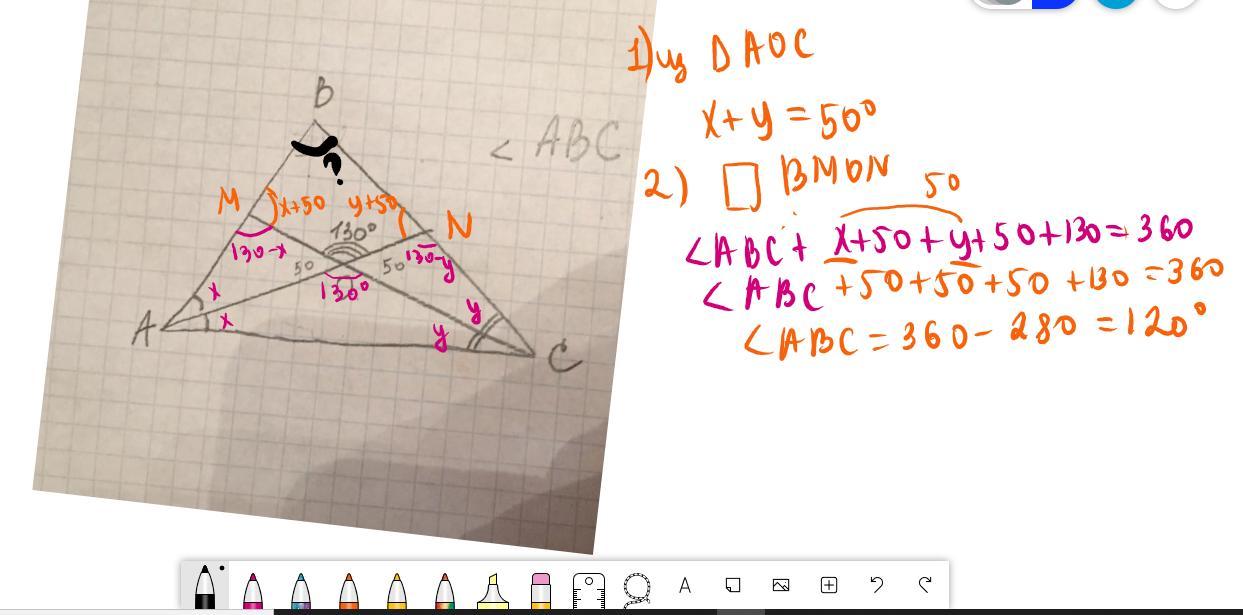 1) из D AOC
x + y = 50°
2) □ BMON
50
∠ABC + x+50 + y+50+130 = 360
∠ABC +50+50+50+130 = 360
∠ABC = 360 - 280 = 120°
B
∠ ABC
?
M x+50 y+50 N
130°
130-x 50 50 130-y
130°
x
x
y
y
A
C
A